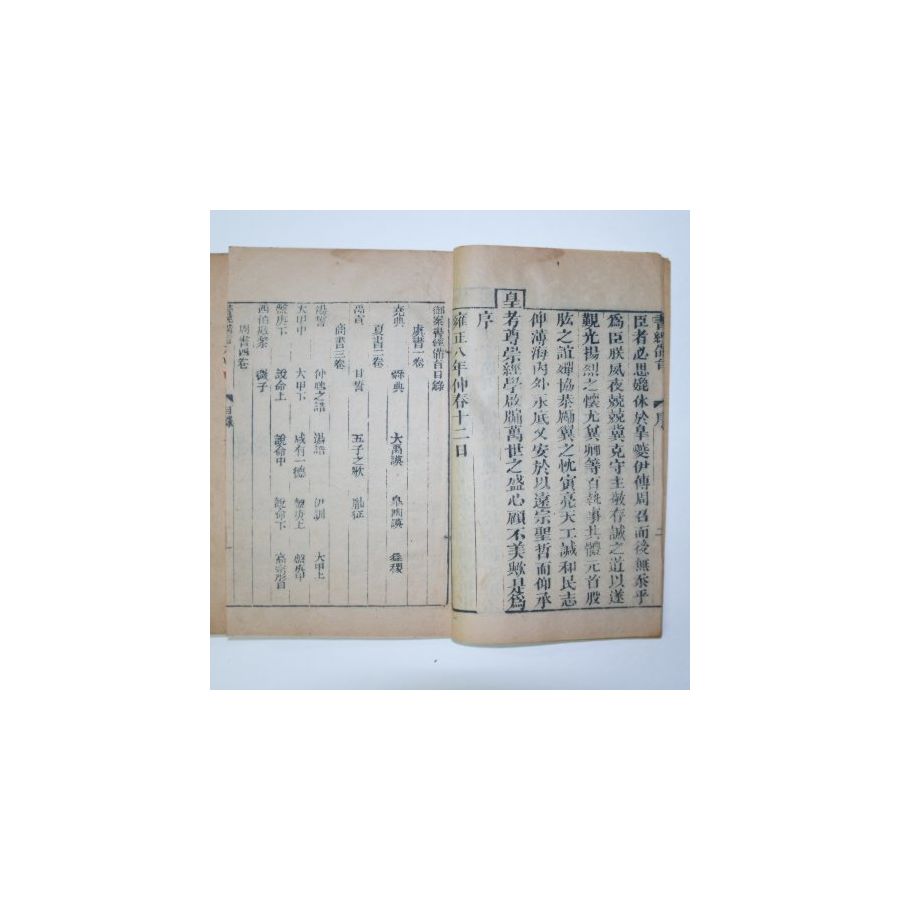 書經備旨 序
臣者必思媲休於皐夔伊傅周召而後無忝乎
爲臣朕夙夜兢兢冀克守主敬存誠之道以遂
覲光揚烈之懷尤冀卿等百執事共體元首股
肱之誼殫協恭勵翼之忱寅亮天工諴和民志
仰薄海內外永底乂安於以遠宗聖哲而仰承
皇考尊崇經學啟牖萬世之盛心顧不美歟是爲
序
雍正八年仲春十二日
御案書經備旨目錄
虞書一卷
堯典 舜典 大禹謨 皐陶謨 益稷
夏書二卷
禹貢 甘誓 五子之歌 胤征
商書三卷
湯誓 仲虺之誥 湯誥 伊訓 大甲上
大甲中 大甲下 咸有一德 盤庚上 盤庚中
盤庚下 說命上 說命中 說命下 高宗肜日
西伯戡黎 微子
周書四卷
目錄